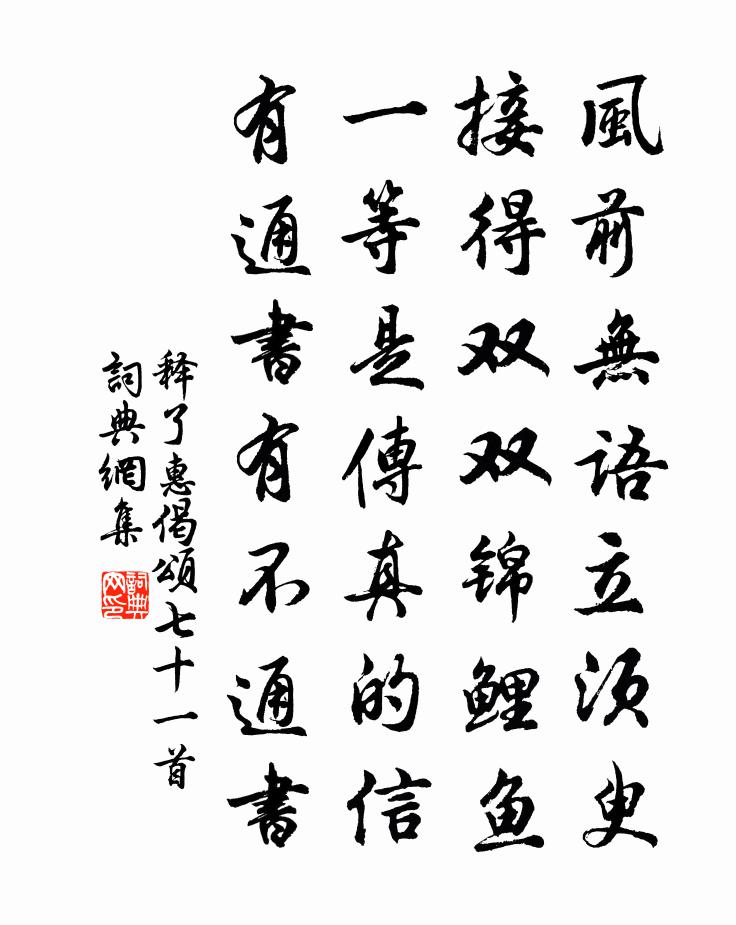 風前無語立須臾
接得双双锦鲤鱼
一等是傳真的信
有通書有不通書
释了惠偈頌七十一首
詞典網集
詞典网印